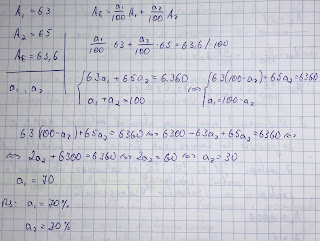 A₁ = 63
A₂ = 65
Aб = 63,6
a₁, a₂
Aб = a₁/100 A₁ + a₂/100 A₂
a₁/100 · 63 + a₂/100 · 65 = 63,6 / · 100
{ 63a₁ + 65a₂ = 6360 ⇔ { 63(100-a₂) + 65a₂ = 6360
a₁ + a₂ = 100 a₁ = 100 - a₂
63(100-a₂) + 65a₂ = 6360 ⇔ 6300 - 63a₂ + 65a₂ = 6360 ⇔
⇔ 2a₂ + 6300 = 6360 ⇔ 2a₂ = 60 ⇔ a₂ = 30
a₁ = 70
a₁ = 70%
a₂ = 30%